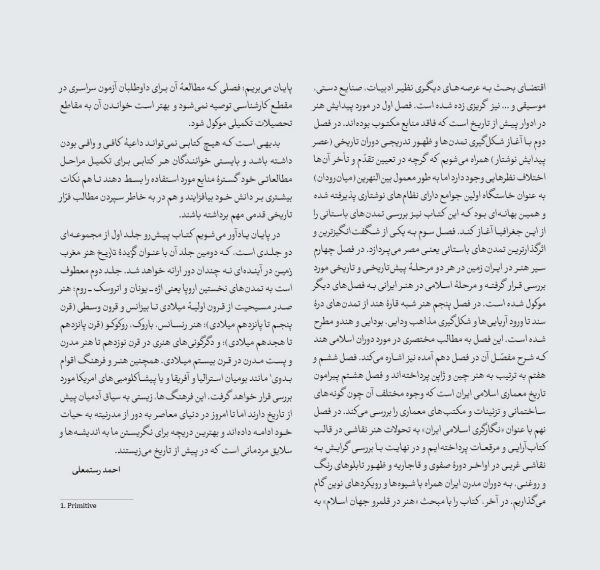 اقتضـای بحـث بـه عرصه‌هـای دیگـری نظیـر ادبیـات، صنایع دسـتی،
موسـیقی و ... نیز گریزی زده شـده اسـت. فصل اول در مورد پیدایش هنر
در ادوار پیـش از تاریـخ اسـت که فاقد منابع مکتـوب بوده‌اند. در فصل
دوم بـا آغـاز شـکل‌گیری تمدن‌هـا و ظهـور تدریجـی دوران تاریخی (عصر
پیدایش نوشـتار) همراه می‌شویم که گرچه در تعیین تقدّم و تأخر آن‌ها
اختلاف نظرهایی وجود دارد اما به طور معمول بین‌النهرین (میان‌رودان)
به عنوان خاسـتگاه اولین جوامع دارای نظام‌های نوشـتاری پذیرفته شده
و همیـن بهانـه‌ای بـود کـه این کتـاب نیـز بررسـی تمدن‌های باسـتانی را
از ایـن جغرافیـا آغـاز کنـد. فصـل سـوم بـه یکـی از شـگفت‌انگیزترین و
اثرگذارتریـن تمدن‌هـای باسـتانی یعنـی مصر می‌پـردازد. در فصل چهارم
سـیر هنـر در ایـران زمیـن در هـر دو مرحلـهٔ پیش‌تاریخـی و تاریخی مورد
بررسـی قـرار گرفتـه و مرحلهٔ اسـلامی در هنـر ایرانی بـه فصل‌های دیگر
موکول شـده اسـت. در فصل پنجم هنر شـبه قارهٔ هند از تمدن‌های درهٔ
سند تا ورود آریایی‌ها و شکل‌گیری مذاهب ودایی، بودایی و هندو مطرح
شـده اسـت. این فصل به مطالب مختصری در مورد دوران اسلامی هند
کـه شـرح مفصّـل آن در فصل دهـم آمده نیز اشـاره می‌کند. فصل ششـم و
هفتـم به ترتیب به هنر چین و ژاپن پرداخته‌اند و فصل هشـتم پیرامون
تاریخ معماری اسـلامی ایران اسـت که وجوه مختلف آن چون گونه‌های
سـاختمانی و تزئینات و مکتب‌های معماری را بررسـی می‌کند. در فصل
نهم با عنوان «نگارگری اسـلامی ایران» به تحولات هنر نقاشـی در قالب
کتاب‌آرایـی و مرقعـات پرداخته‌ایـم و در نهایـت بـا بررسـی گرایـش بـه
نقاشـی غربـی در اواخـر دورهٔ صفوی و قاجاریـه و ظهـور تابلوهای رنگ
و روغنـی، بـه دوران مدرن ایـران همراه با شـیوه‌ها و رویکردهای نوین گام
می‌گذاریم. در آخر، کتاب را با مبحث «هنر در قلمرو جهان اسـلام» به
پایان می‌بریم؛ فصلی کـه مطالعهٔ آن بـرای داوطلبان آزمون سراسـری در
مقطـع کارشناسـی توصیه نمی‌شـود و بهتر اسـت خوانـدن آن به مقاطع
تحصیلات تکمیلی موکول شود.
بدیهـی اسـت کـه هیـچ کتابـی نمی‌توانـد داعیـهٔ کافـی و وافـی بـودن
داشـته باشـد و بایسـتی خواننـدگان هـر کتابـی بـرای تکمیـل مراحـل
مطالعاتـی خود گسـترهٔ منابع مورد اسـتفاده را بسـط دهند تـا هم نکات
بیشـتری بـر دانـش خـود بیافزاینـد و هـم در به خاطر سـپردن مطالب فرّار
تاریخی قدمی مهم برداشته باشند.
در پایـان یـادآور می‌شـویم کتاب پیش‌رو جلـد اول از مجموعـه‌ای
دو جلـدی اسـت، کـه دومین جلـد آن با عنـوان گزیدهٔ تاریـخ هنر مغرب
زمیـن در آینـده‌ای نـه چندان دور ارائه خواهد شـد. جلـد دوم معطوف
است به تمدن‌های نخستین اروپا یعنی اژه ـ یونان و اتروسک ـ روم؛ هنر
صدر مسـیحیت از قـرون اولیـهٔ میلادی تـا بیزانس و قرون وسـطی (قرن
پنجم تا پانزدهم میلادی)؛ هنر رنسـانس، باروک، روکوکو (قرن پانزدهم
تـا هجدهم میلادی)؛ و دگرگونی‌هـای هنری در قرن نوزدهم تا هنر مدرن
و پسـت مـدرن در قـرن بیسـتم میـلادی. همچنیـن هنـر و فرهنـگ اقوام
بـدوی¹ مانند بومیان اسـترالیا و آفریقا و یا پیشـاکلومبی‌های امریکا مورد
بررسی قرار خواهد گرفت. این فرهنگ‌ها، زیستی به سیاق آدمیان پیش
از تاریـخ دارنـد اما تا امـروز در دنیای معاصر به دور از مدرنیته به حیات
خـود ادامـه داده‌اند و بهتریـن دریچه برای نگریسـتن ما به اندیشـه‌ها و
سلایق مردمانی است که در پیش از تاریخ می‌زیستند.
احمد رستمعلی
1. Primitive